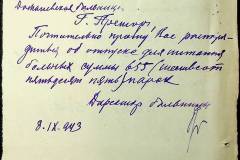 больница.
Г. Претор!
Почтительно прошу Вас распоря-
диться об отпуске для питания
больных суммы 655 / шестьсот
пятьдесят пять / марок
Директор больницы
8.IX.943